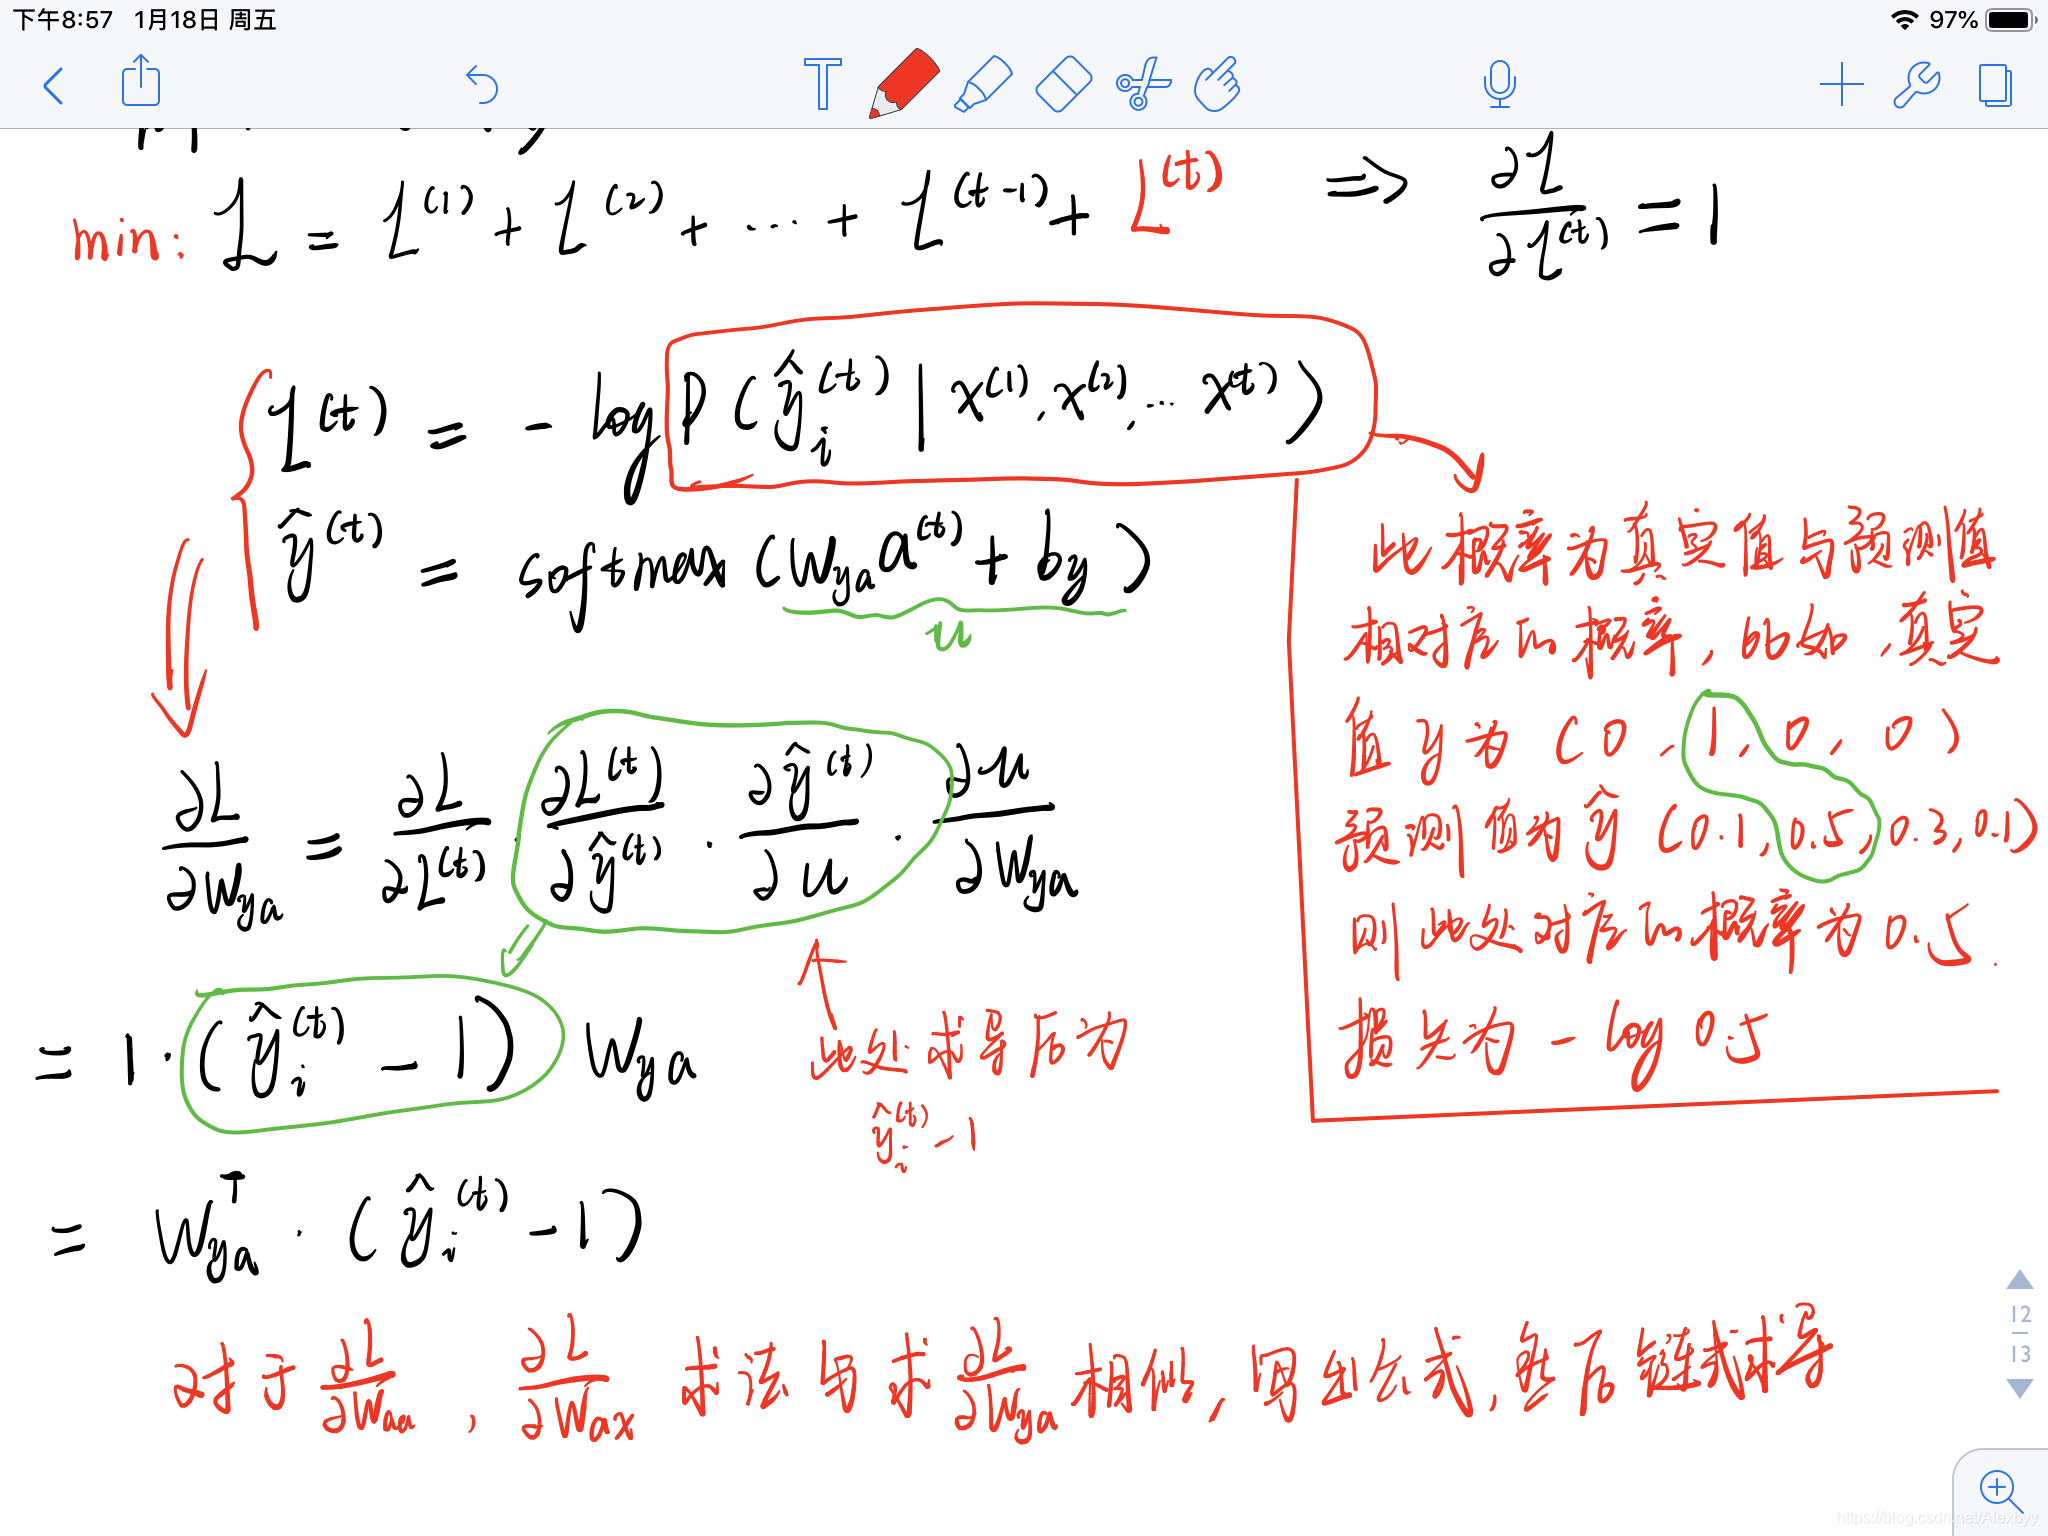 下午8:57 1月18日 周五 97%
T
min: L = L^(1) + L^(2) + ... + L^(t-1) + L^(t) => ∂L/∂L^(t) = 1
L^(t) = - log P(ŷ_i^(t) | x^(1), x^(2), ... x^(t))
ŷ^(t) = softmax (W_ya a^(t) + b_y)
u
此概率为真实值与预测值
相对应的概率, 比如, 真实
值 y 为 (0, 1, 0, 0)
预测值为 ŷ (0.1, 0.5, 0.3, 0.1)
则此处对应的概率为 0.5.
损失为 - log 0.5
∂L/∂W_ya = ∂L/∂L^(t) · ∂L^(t)/∂ŷ^(t) · ∂ŷ^(t)/∂u · ∂u/∂W_ya
= 1 · (ŷ_i^(t) - 1) W_ya
此处求导后为
ŷ_i^(t) - 1
= W_ya^T · (ŷ_i^(t) - 1)
对于 ∂L/∂W_aa , ∂L/∂W_ax 求法与求 ∂L/∂W_ya 相似, 写出公式, 然后链式求导
12
13
https://blog.csdn.net/Alexbyy